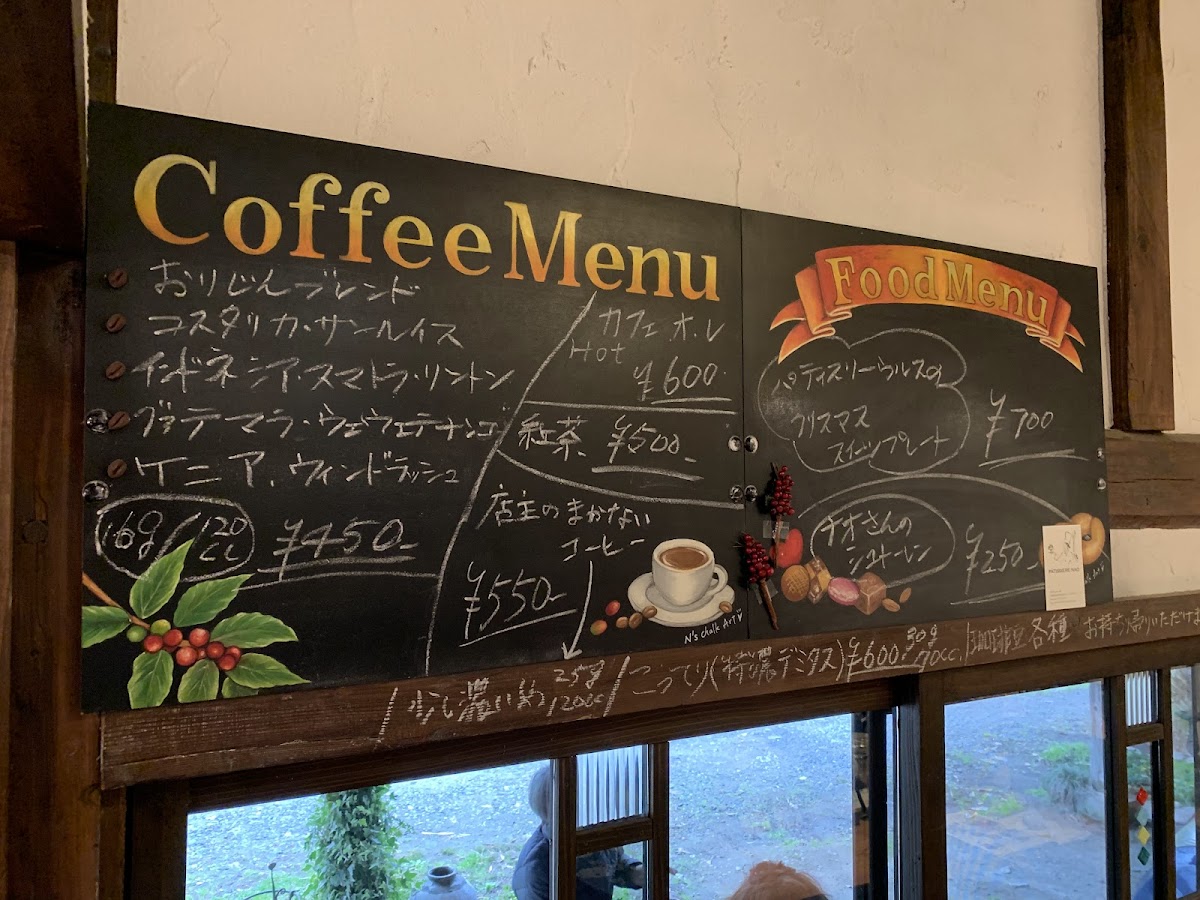 Coffee Menu
おりじんブレンド
コスタリカ・サンルイス
インドネシア・スマトラ・リントン
グァテマラ・ウェウェテナンゴ
ケニア・ウィンドラッシュ
16g/120cc
¥450-
カフェ・オ・レ
Hot
¥600-
紅茶 ¥500-
店主のまかない
コーヒー
¥550-
N's chalk Art
Food Menu
パティスリー・ウルスの
クリスマス
スイーツプレート
¥700
チオさんの
シュトーレン
¥250
少し濃いめ 25g/120cc
こってり(特濃デミタス)¥600- 30g/70cc
珈琲豆各種 お持ち帰りいただけま